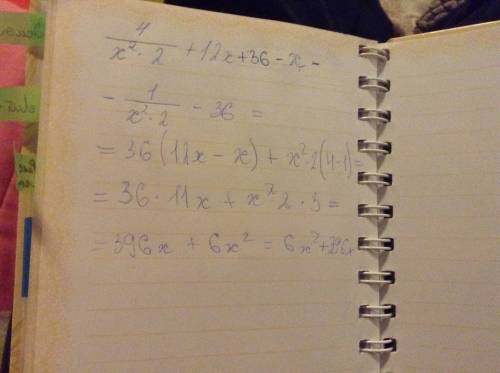 4/(x²·2) + 12x + 36 - x -
- 1/(x²·2) - 36 =
= 36(12x - x) + x²2(4-1) =
= 36·11x + x²2·3 =
= 396x + 6x² = 6x²+396x